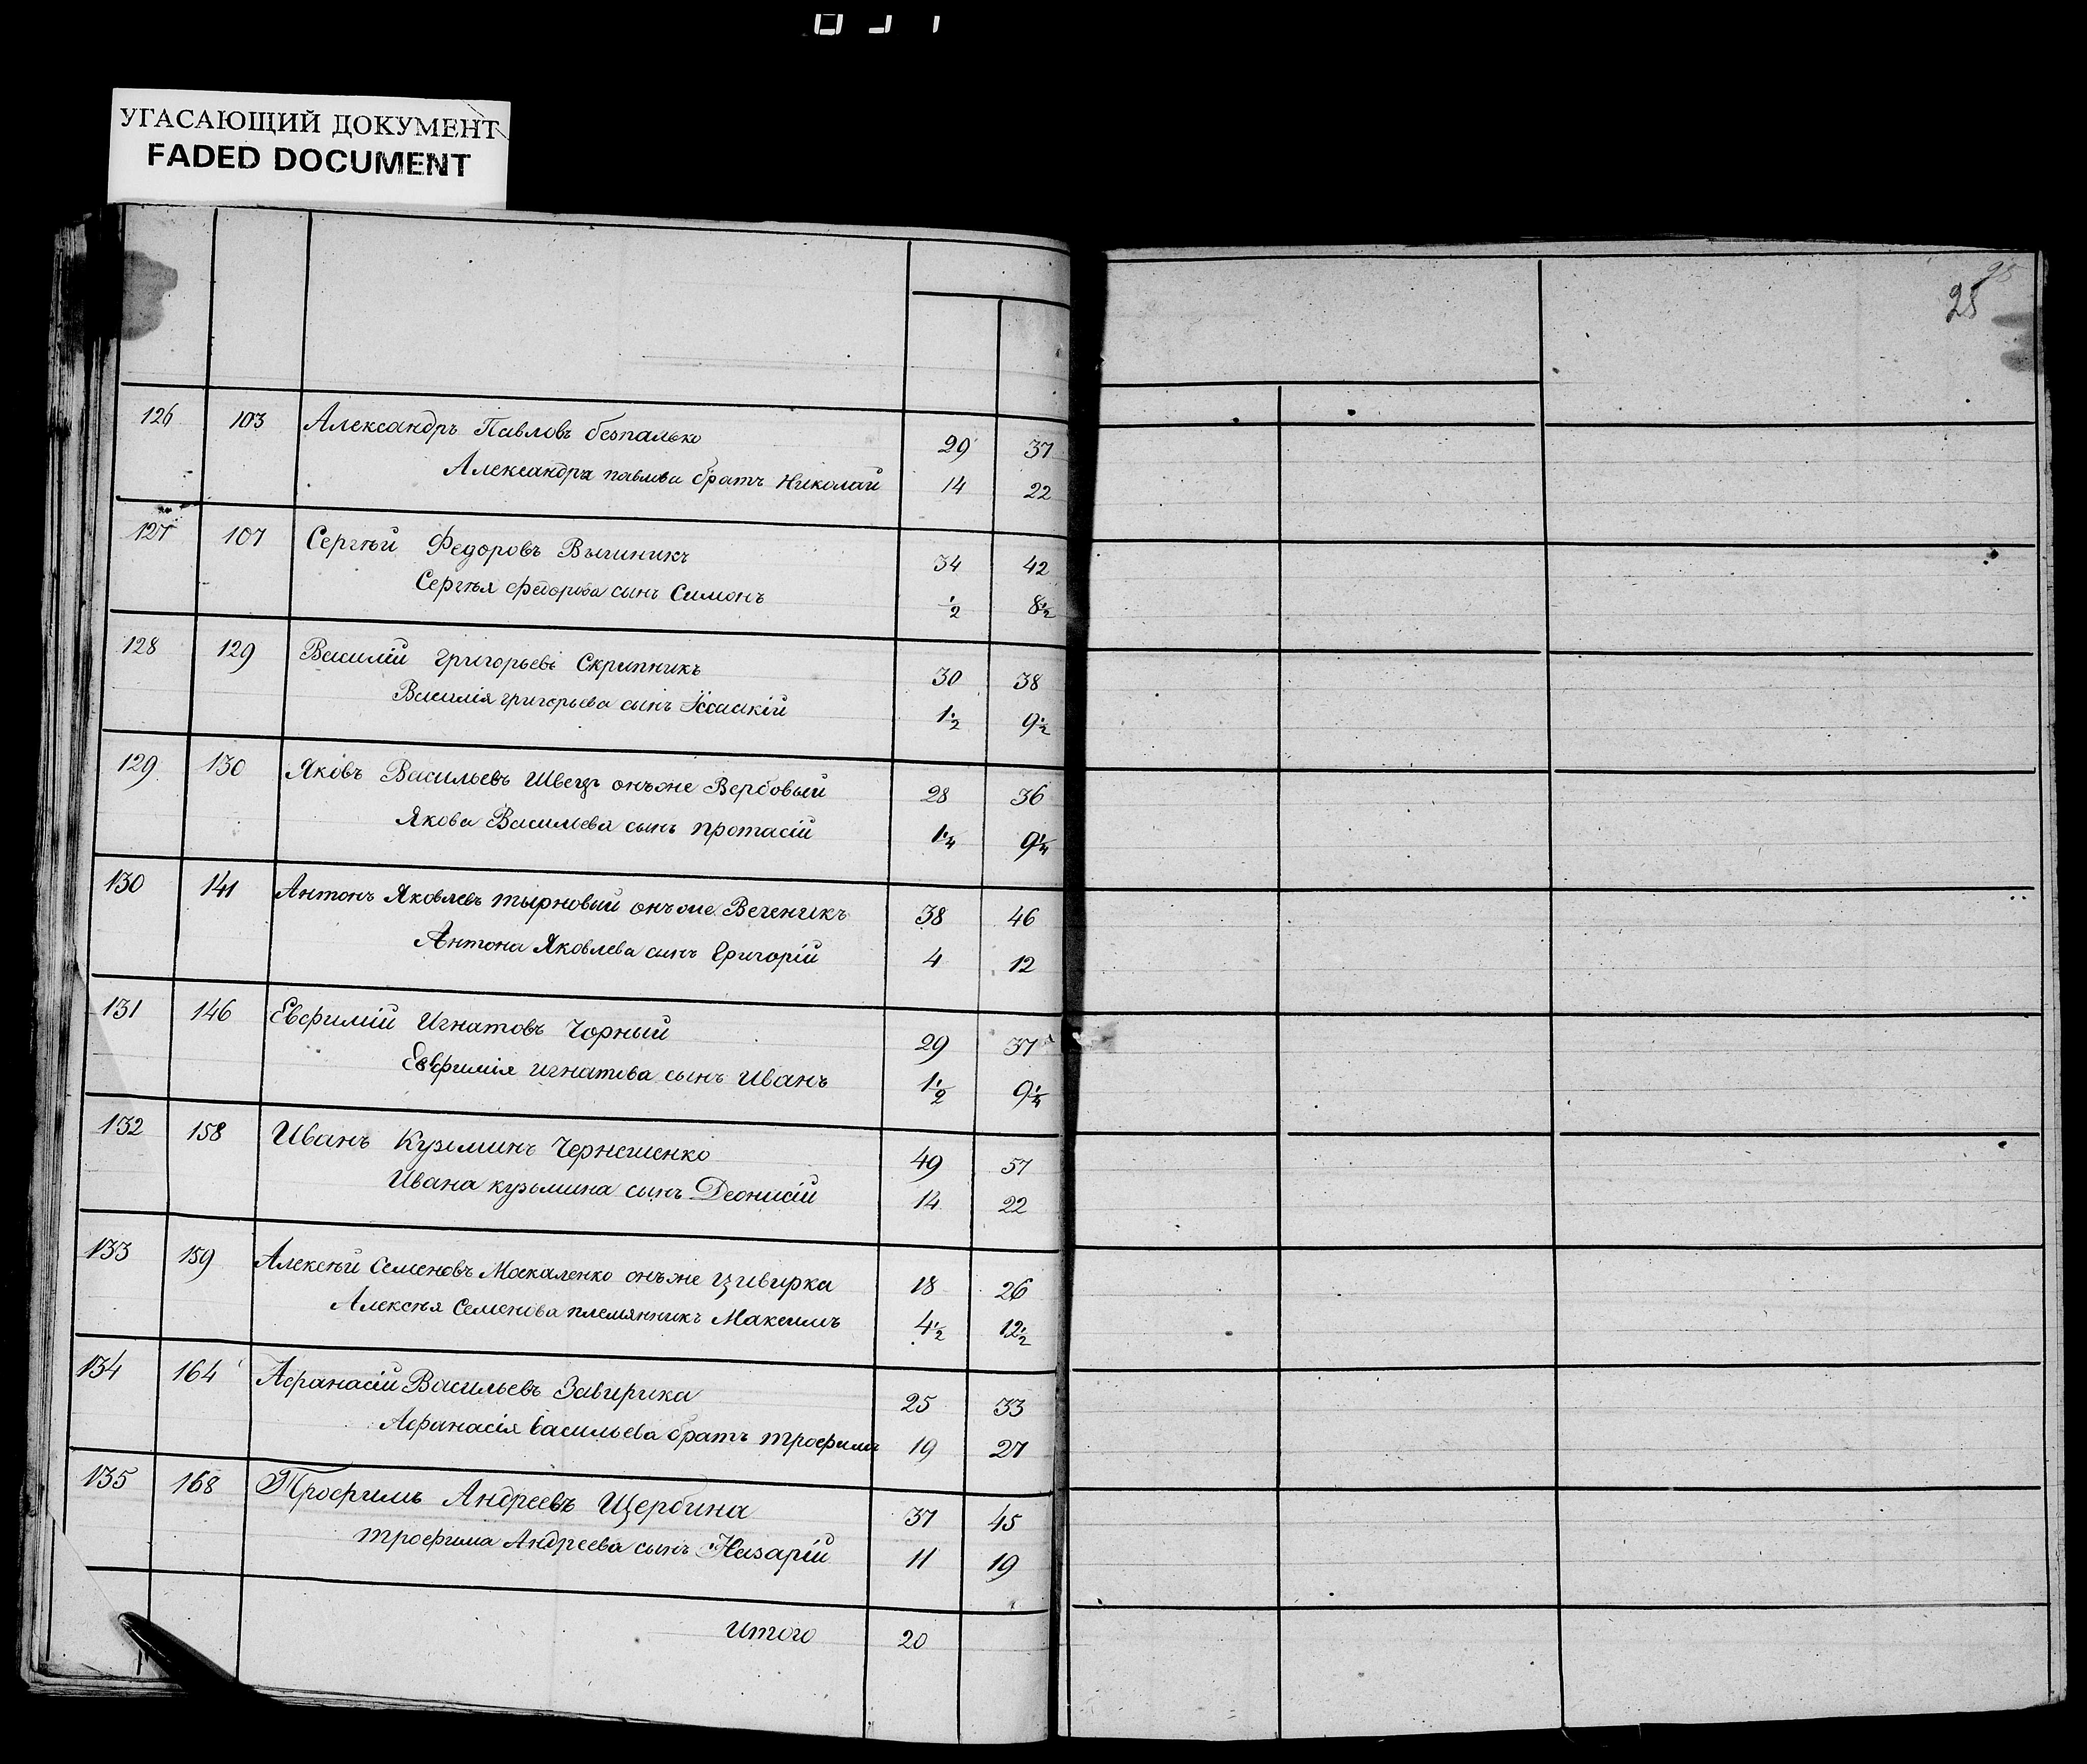 УГАСАЮЩИЙ ДОКУМЕНТ
FADED DOCUMENT
28
126 103 Александръ Павловъ безпалько 29 37
Александра павлова братъ Николай 14 22
127 107 Сергѣй Федоровъ Вышникъ 34 42
Сергѣя Федорова сынъ Симонъ 1/2 8 1/2
128 129 Василій григорьевъ Скрипникъ 30 38
Василія григорьева сынъ 1 1/2 9 1/2
129 130 Яковъ Васильевъ Швецъ онъже Вербовый 28 36
Якова Васильева сынъ протасій 1 1/4 9 1/4
130 141 Антонъ Яковлевъ тырновый онъже Вегеникъ 38 46
Антона Яковлева сынъ Григорій 4 12
131 146 Евфимій Игнатовъ Чорный 29 37
Евфимія игнатова сынъ Иванъ 1 1/2 9 1/4
132 158 Иванъ Кузьминъ Чернешенко 49 57
Ивана кузьмина сынъ Деонисій 14 22
133 159 Алексѣй Семеновъ Москаленко онъже Цивирка 18 26
Алексѣя Семенова племянникъ Максимъ 4 1/2 12 1/2
134 164 Афанасій Васильевъ Завирика 25 33
Афанасія васильева братъ трофимъ 19 27
135 168 Трофимъ Андреевъ Щербина 37 45
трофима Андреева сынъ Назарій 11 19
Итого 20